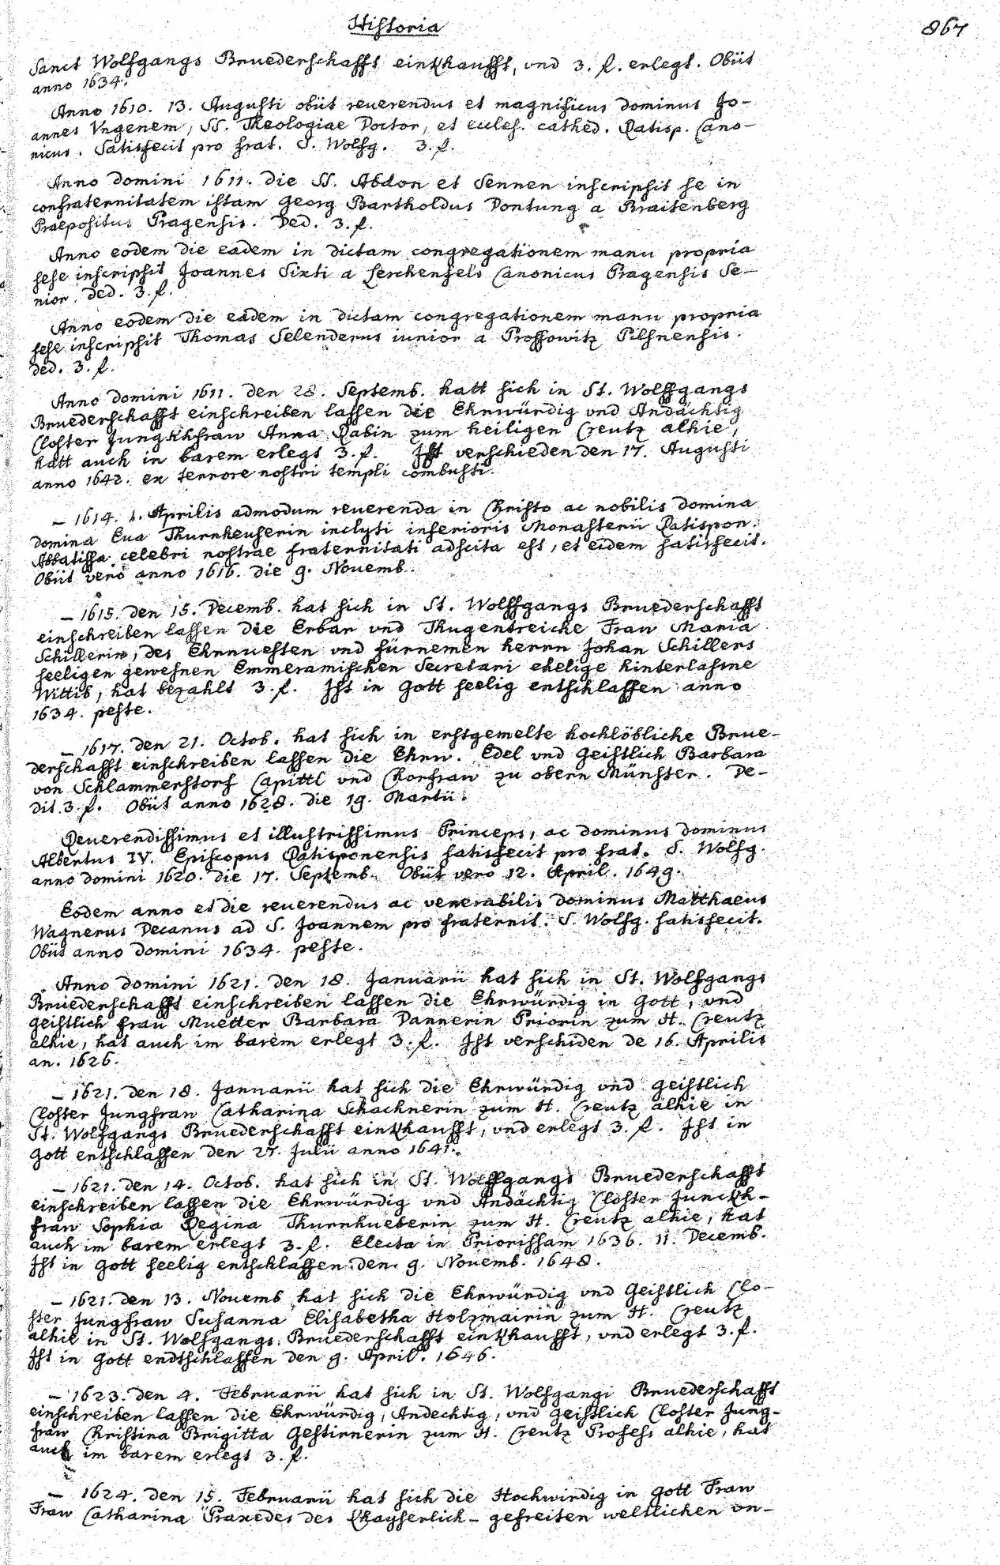 Historia
867
Sanct Wolfgangs Bruederschafft einkhaufft, vnd 3. f. erlegt. Obiit
anno 1634.
Anno 1610. 13. Augusti obiit reuerendus et magnificus dominus Jo-
annes Vngenem, SS. Theologiae Doctor, et eccles. cathed. Ratisp. Cano-
nicus. Satisfecit pro frat. S. Wolfg. 3. f.
Anno domini 1611. die SS. Abdon et Sennen inscripsit se in
confraternitatem istam Georg Bartholdus Pontung a Braitenberg
Praepositus Pragensis. Ded. 3. f.
Anno eodem die eadem in dictam congregationem manu propria
sese inscripsit Joannes Sixti a Lerchenfels Canonicus Pragensis Se-
nior. ded. 3. f.
Anno eodem die eadem in dictam congregationem manu propria
sese inscripsit Thomas Selenderus iunior a Prossowitz Pilsnensis.
ded. 3. f.
Anno domini 1611. den 28. Septemb. hatt sich in St. Wolffgangs
Bruederschafft einschreiben lassen die Ehrwürdig vnd Andächtig
Closter Jungkhfraw Anna Rabin zum heiligen Creutz alhie,
hatt auch in barem erlegt 3. f. Ist verschieden den 17. Augusti
anno 1642. ex terrore nostri templi combusti.
– 1614. 1. Aprilis admodum reuerenda in Christo ac nobilis domina
domina Eua Thurnheuserin inclyti inferioris Monasterii Ratispon.
Abbatissa celebri nostrae fraternitati adscita est, et eidem satisfecit.
Obiit vero anno 1616. die 9. Nouemb.
– 1615. den 15. Decemb. hat sich in St. Wolffgangs Bruederschafft
einschreiben lassen die Erbar vnd Thugentreiche Fraw Maria
Schillerin, des Ehrnuesten vnd fürnemen herrn Johan Schillers
seeligen gewesnen Emmeramischen Secretari ehelige hinterlasne
Wittib, hat bezahlt 3. f. Ist in Gott seelig entschlaffen anno
1634. peste.
– 1617. den 21. Octob. hat sich in erstgemelte hochlöbliche Brue-
derschafft einschreiben lassen die Ehrw. Edel vnd Geistlich Barbara
von Schlammerstorf Capittl vnd Chorfraw zu obern Münster. De-
dit 3. f. Obiit anno 1628. die 19. Martii.
Reuerendissimus et illustrissimus Princeps, ac dominus dominus
Albertus IV. Episcopus Ratisponensis satisfecit pro frat. S. Wolfg.
anno domini 1620. die 17. Septemb. Obiit vero 12. April. 1649.
Eodem anno et die reuerendus ac venerabilis dominus Matthaeus
Wagnerus Decanus ad S. Joannem pro fraternit. S. Wolfg. satisfecit.
Obiit anno domini 1634. peste.
Anno domini 1621. den 18. Januarii hat sich in St. Wolfgangs
Bruederschafft einschreiben lassen die Ehrwürdig in Gott, vnd
geistlich frau Muetter Barbara Dannerin Priorin zum H. Creutz
alhie, hat auch im barem erlegt 3. f. Ist verschiden de 16. Aprilis
an. 1626.
– 1621. den 18. Januarii hat sich die Ehrwürdig vnd geistlich
Closter Jungfraw Catharina Schachnerin zum H. Creutz alhie in
St. Wolfgangs Bruederschafft einkhaufft, vnd erlegt 3. f. Ist in
Gott entschlaffen den 27. Julii anno 1641.
– 1621. den 14. Octob. hat sich in St. Wolffgangs Bruederschafft
einschreiben lassen die Ehrwürdig vnd Andächtig Closter Junckh-
fraw Sophia Regina Thurnhueberin zum H. Creutz alhie, hat
auch im barem erlegt 3. f. Electa in Priorissam 1636. 11. Decemb.
Ist in Gott seelig entschlaffen den 9. Nouemb. 1648.
– 1621. den 13. Nouemb. hat sich die Ehrwürdig vnd Geistlich Clo-
ster Jungfraw Susanna Elisabetha Holzmairin zum H. Creutz
alhie in St. Wolfgangs Bruederschafft einkhaufft, vnd erlegt 3. f.
Ist in Gott endtschlaffen den 9. April. 1646.
– 1623. den 4. Februarii hat sich in St. Wolfgangi Bruederschafft
einschreiben lassen die Ehrwürdig, Andechtig, vnd geistlich Closter Jung-
fraw Christina Brigitta Gestirnerin zum H. Creutz Profess alhie, hat
auch im barem erlegt 3. f.
– 1624. den 15. Februarii hat sich die Hochwirdig in Gott Fraw
Fraw Catharina Praxedes des Khayserlich- gefreiten weltlichen vn-